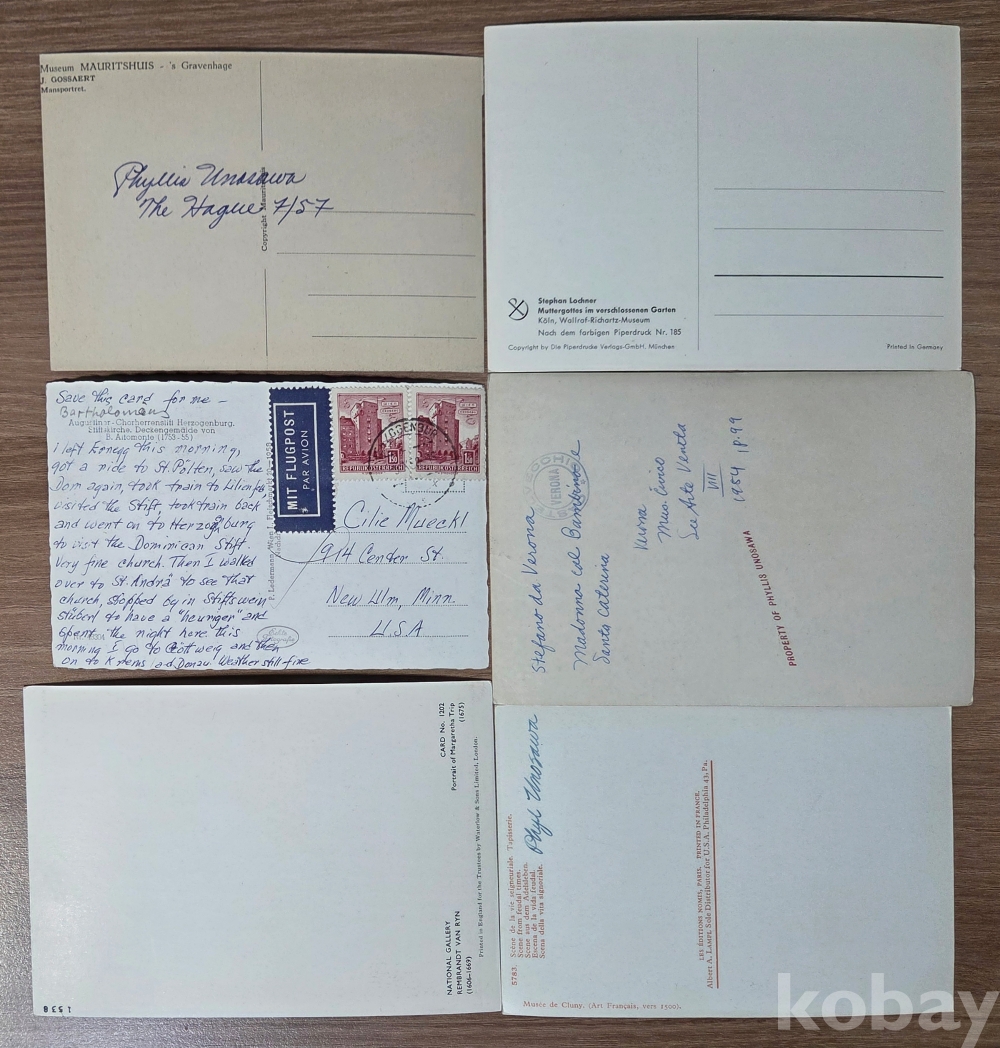 Museum MAURITSHUIS - 's Gravenhage
J. GOSSAERT
Mansportret.
Phyllis Unosawa
The Hague 7/57
Copyright Mauritshuis
Stephan Lochner
Muttergottes im verschlossenen Garten
Köln, Wallraf-Richartz-Museum
Nach dem farbigen Piperdruck Nr. 185
Copyright by Die Piperdrucke Verlags-GmbH. München
Printed in Germany
Save this card for me -
Bartholomaeus
Augustiner-Chorherrenstift Herzogenburg,
Stiftskirche, Deckengemälde von
B. Altomonte (1753-55)
i left Ennegg this morning,
got a ride to St. Pölten, saw the
Dom again, took train to Lilienfeld
visited the Stift, took train back
and went on to Herzogenburg
to visit the Dominican Stift.
Very fine church. Then I walked
over to St. Andrä to see that
church, stopped by in Stiftswein
stüberl to have a "heuriger" and
spent the night here this
morning I go to Göttweig and then
on to Krems a.d. Donau. Weather still fine
MIT FLUGPOST
PAR AVION
REPUBLIK ÖSTERREICH
1.50
REPUBLIK ÖSTERREICH
1.50
Cilie Mueckl
914 Center St.
New Ulm, Minn.
U.S.A
VERONA
Stefano da Verona
Madonna col Bambino e
Santa Caterina
Verona
Museo Civico
See Arte Veneta
VIII
1954, p. 99
PROPERTY OF PHYLLIS UNOSAWA
CARD No. 1202
Portrait of Margaretha Trip
(1675)
Printed in England for the Trustees by Waterlow & Sons Limited, London.
NATIONAL GALLERY
REMBRANDT VAN RYN
(1606-1669)
1538
Phyl Unosawa
5783. Scène de la vie seigneuriale. Tapisserie.
Scene from feudal times.
Scene aus dem Adelsleben.
Escena de la vida feudal.
Scena della vita signorile.
LES ÉDITIONS NOMIS, PARIS. PRINTED IN FRANCE.
Albert A. LAMPL Sole Distributor for U.S.A. Philadelphia 43, Pa.
Musée de Cluny. (Art Français, vers 1500).
kobay